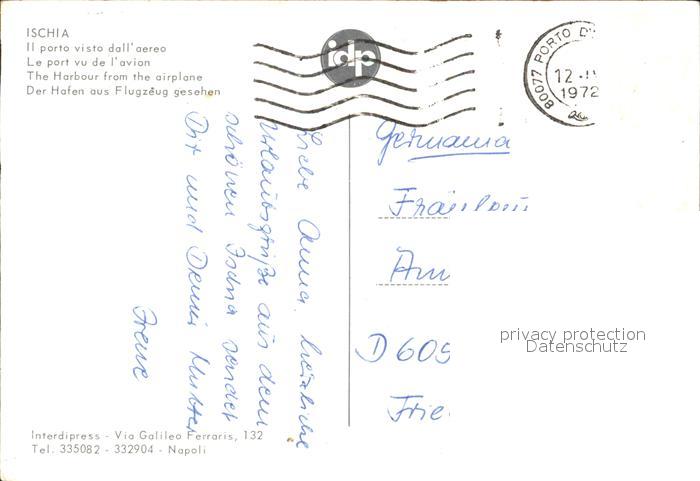 ISCHIA
Il porto visto dall'aereo
Le port vu de l'avion
The Harbour from the airplane
Der Hafen aus Flugzeug gesehen
idp
80077 PORTO D'
12
1972
Liebe Anna, herzliche
Urlaubsgrüße aus dem
schönen Ischia sendet
Dir und Deiner Mutter
Irene
Germania
Fräulein
D 605
Frie
privacy protection
Datenschutz
Interdipress - Via Galileo Ferraris, 132
Tel. 335082 - 332904 - Napoli